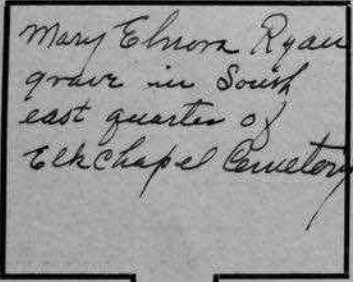 Mary Elnora Ryan
grave in South
east quarter of
Elk Chapel Cemetery